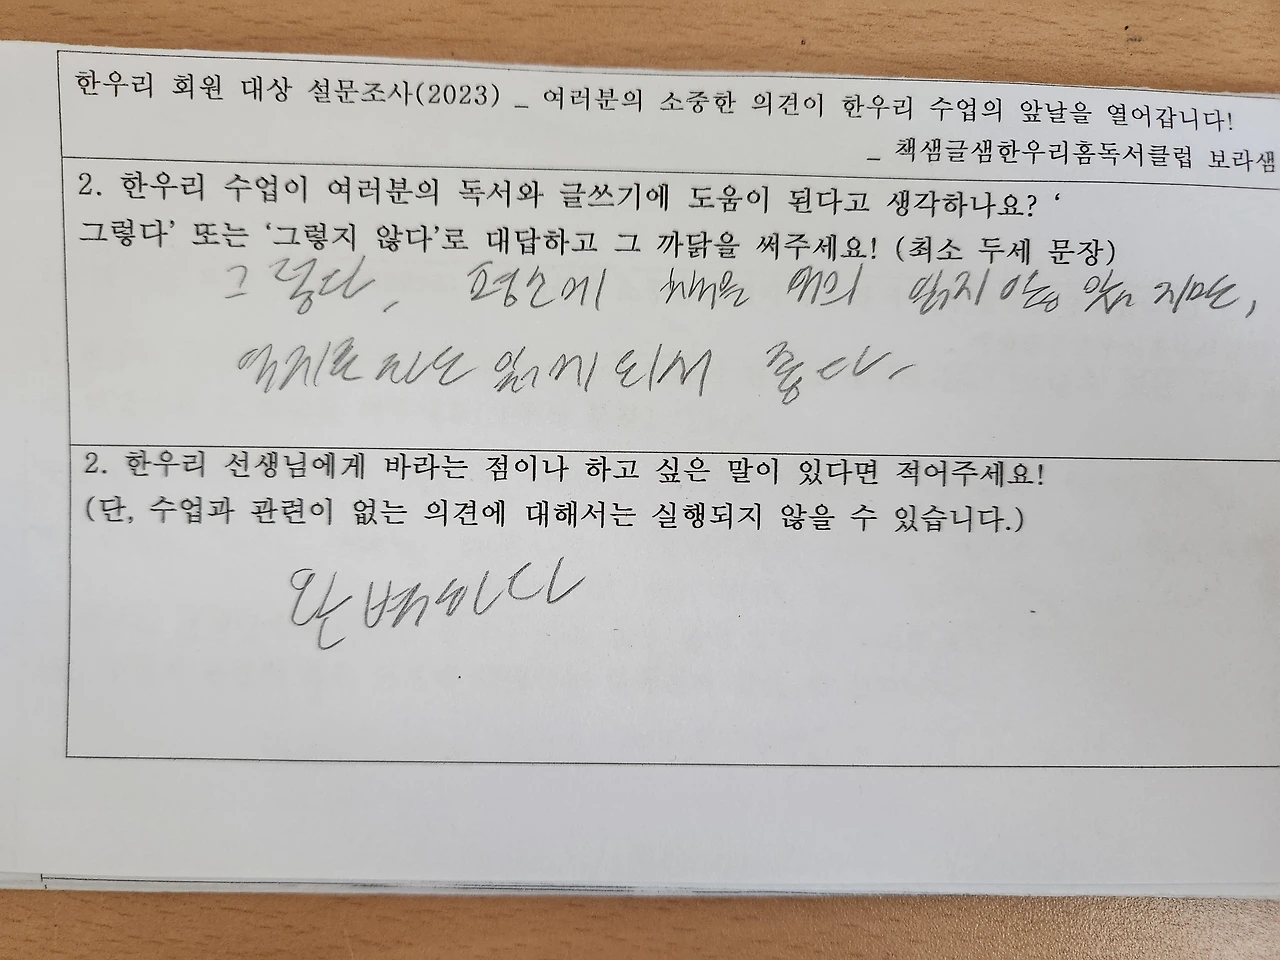 한우리 회원 대상 설문조사(2023) _ 여러분의 소중한 의견이 한우리 수업의 앞날을 열어갑니다!
_ 책샘글샘한우리홈독서클럽 보라샘
2. 한우리 수업이 여러분의 독서와 글쓰기에 도움이 된다고 생각하나요? ‘
그렇다’ 또는 ‘그렇지 않다’로 대답하고 그 까닭을 써주세요! (최소 두세 문장)
그렇다, 평소에 책을 거의 읽지 않았지만,
억지로라도 읽게 되서 좋다.
2. 한우리 선생님에게 바라는 점이나 하고 싶은 말이 있다면 적어주세요!
(단, 수업과 관련이 없는 의견에 대해서는 실행되지 않을 수 있습니다.)
완벽하다